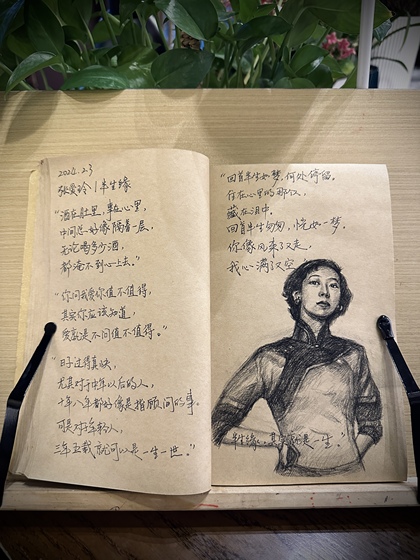 2024.2.3
张爱玲 | 半生缘
“酒在肚里，事在心里，
中间总好像隔着一层，
无论喝多少酒，
都淹不到心上去。”
“你问我爱你值不值得，
其实你应该知道，
爱就是不问值不值得。”
“日子过得真快，
尤其对于中年以后的人，
十年八年都好像是指顾间的事。
可是对年轻人，
三年五载就可以是一生一世。”
“回首半生如梦，何处停留，
住在心里的那个人，
藏在泪中。
回首半生匆匆，恍如一梦，
你像风来了又走，
我心满了又空。
半生缘，其实 是一生。”